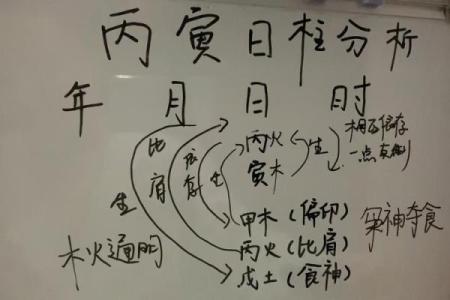 丙寅日柱分析
年 月 日 时
比肩
依存
生
生
丙火
寅木
生
相互依存
一点支制
甲木（偏印）
丙火（比肩）
戊土（食神）
枭神夺食
木火通明